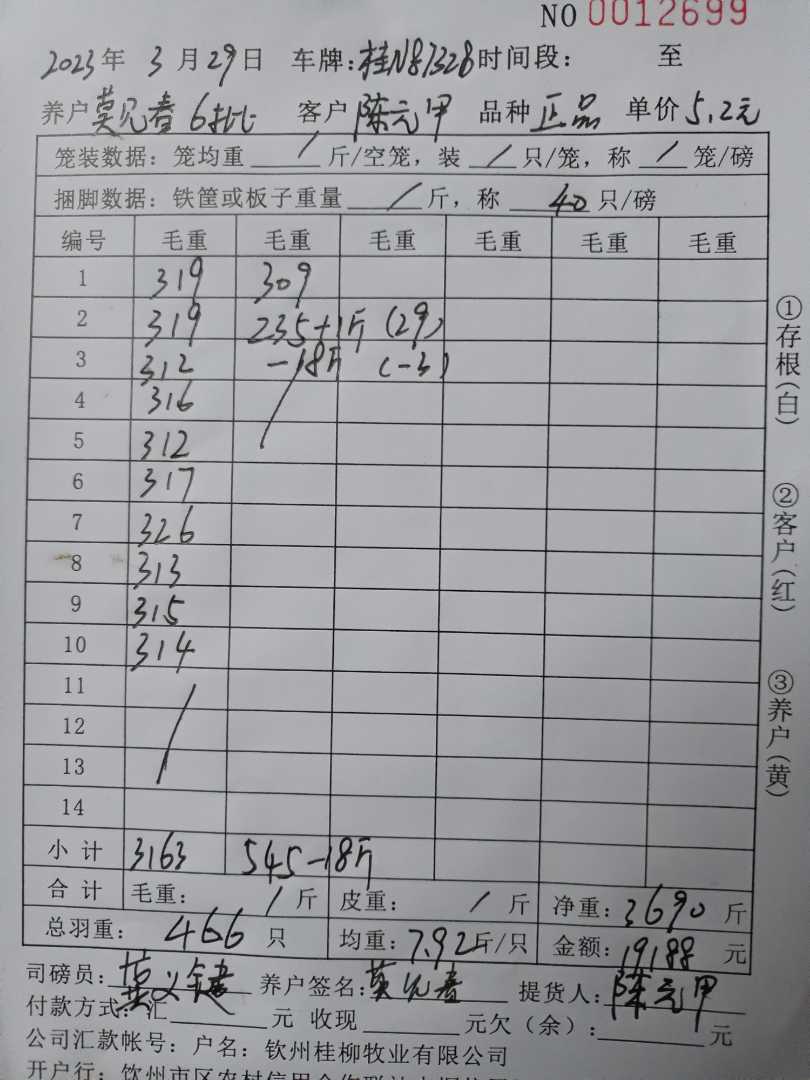 NO 0012699
2023年 3月29日 车牌:桂N87328时间段: 至
养户莫见春 6批 客户陈元甲 品种正品 单价5.2元
笼装数据: 笼均重 / 斤/空笼, 装 / 只/笼, 称 / 笼/磅
捆脚数据: 铁筐或板子重量 / 斤, 称 40 只/磅
编号 毛重 毛重 毛重 毛重 毛重 毛重
1 319 309
2 319 235+1斤 (29)
3 312 -18斤 (-3)
4 316 /
5 312
6 317
7 326
8 313
9 315
10 314
11 /
12
13
14
小计 3163 545-18斤
合计 毛重: / 斤 皮重: / 斤 净重:3690 斤
总羽重: 466 只 均重:7.92斤/只 金额:19188 元
司磅员: 莫义健 养户签名:莫见春 提货人:陈元甲
付款方式: 汇 元 收现 元欠(余): 元
公司汇款帐号: 户名: 钦州桂柳牧业有限公司
开户行: 钦州市区农村信用合作联社
①存根(白)
②客户(红)
③养户(黄)